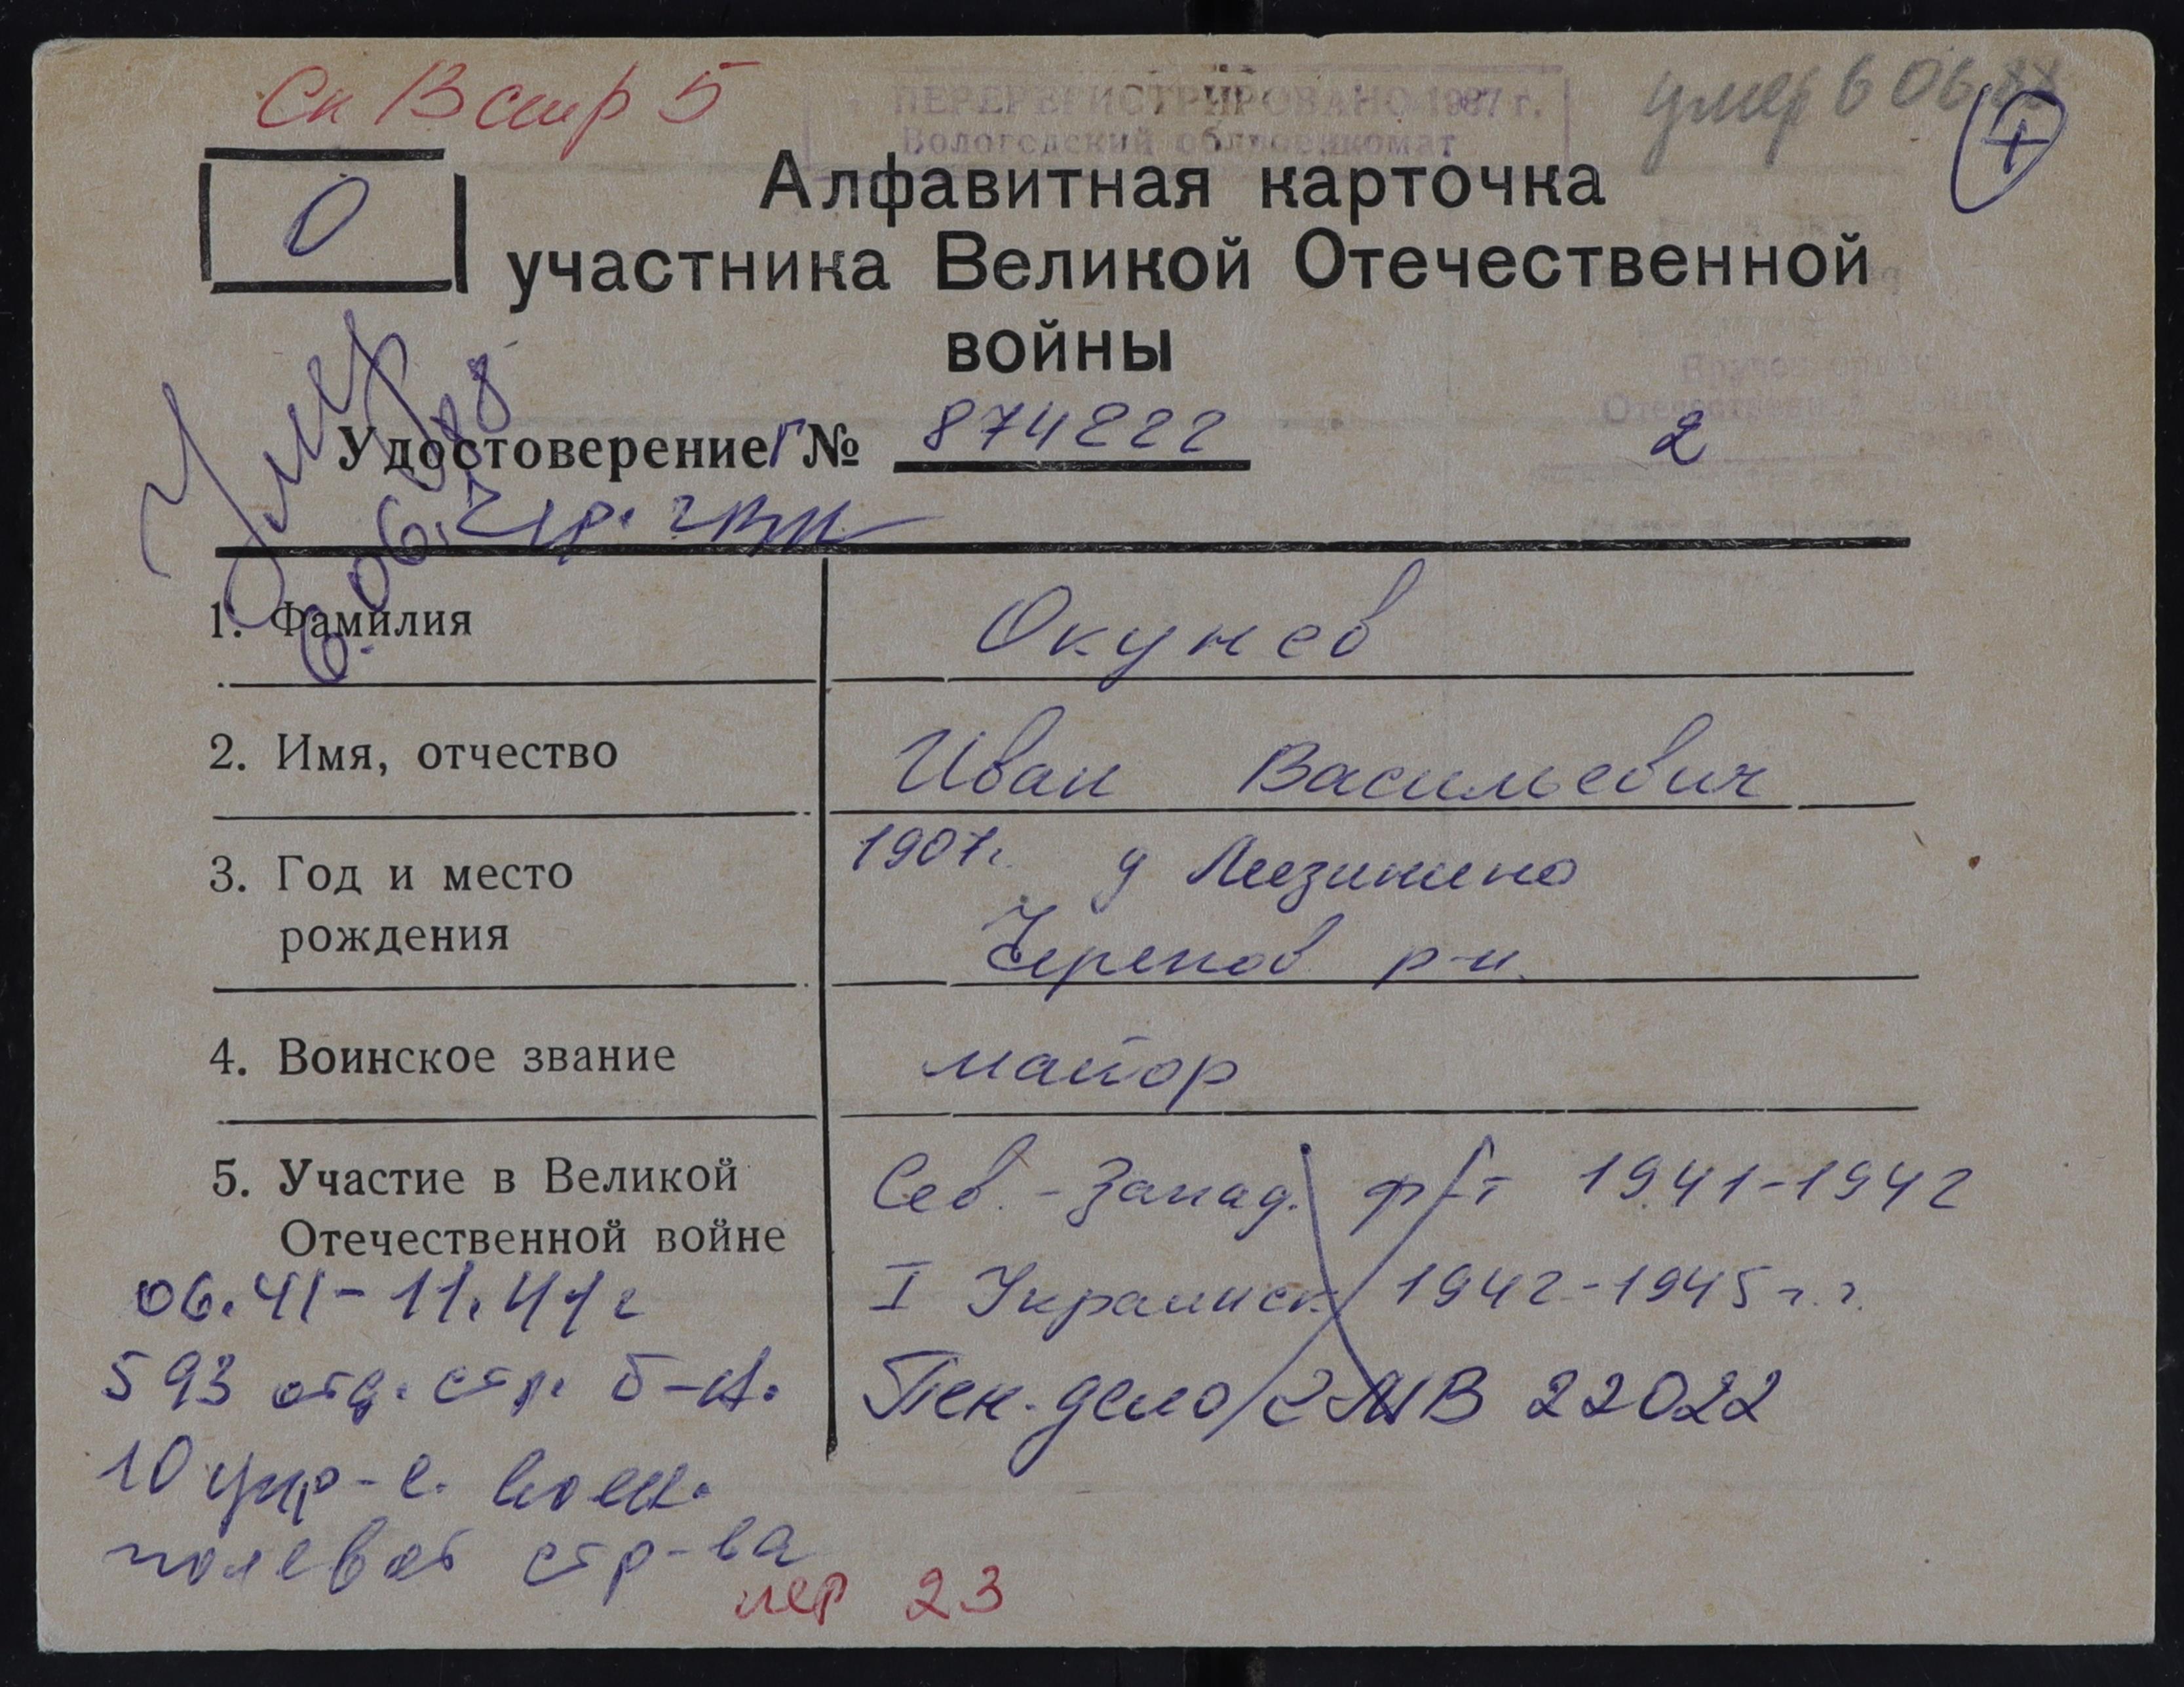 Сп В стр 5
ПЕРЕРЕГИСТРИРОВАНО 1987 г.
Вологодский облвоенкомат
умер 6 06 88
+
О
Алфавитная карточка
участника Великой Отечественной
войны
Умер
6.06.88
Удостоверение Г № 874222
2
1. Фамилия
Окунев
2. Имя, отчество
Иван Васильевич
3. Год и место
рождения
1907г. д
Черепов р-н.
4. Воинское звание
майор
5. Участие в Великой
Отечественной войне
Сев.-Запад. фр-т 1941-1942
I Украинск 1942-1945 г.г.
Пен. дело МВ 22022
06.41-11.41г
593 отд. стр. б-н.
10 упр-е. воен.
полевое стр-ва
пер 23